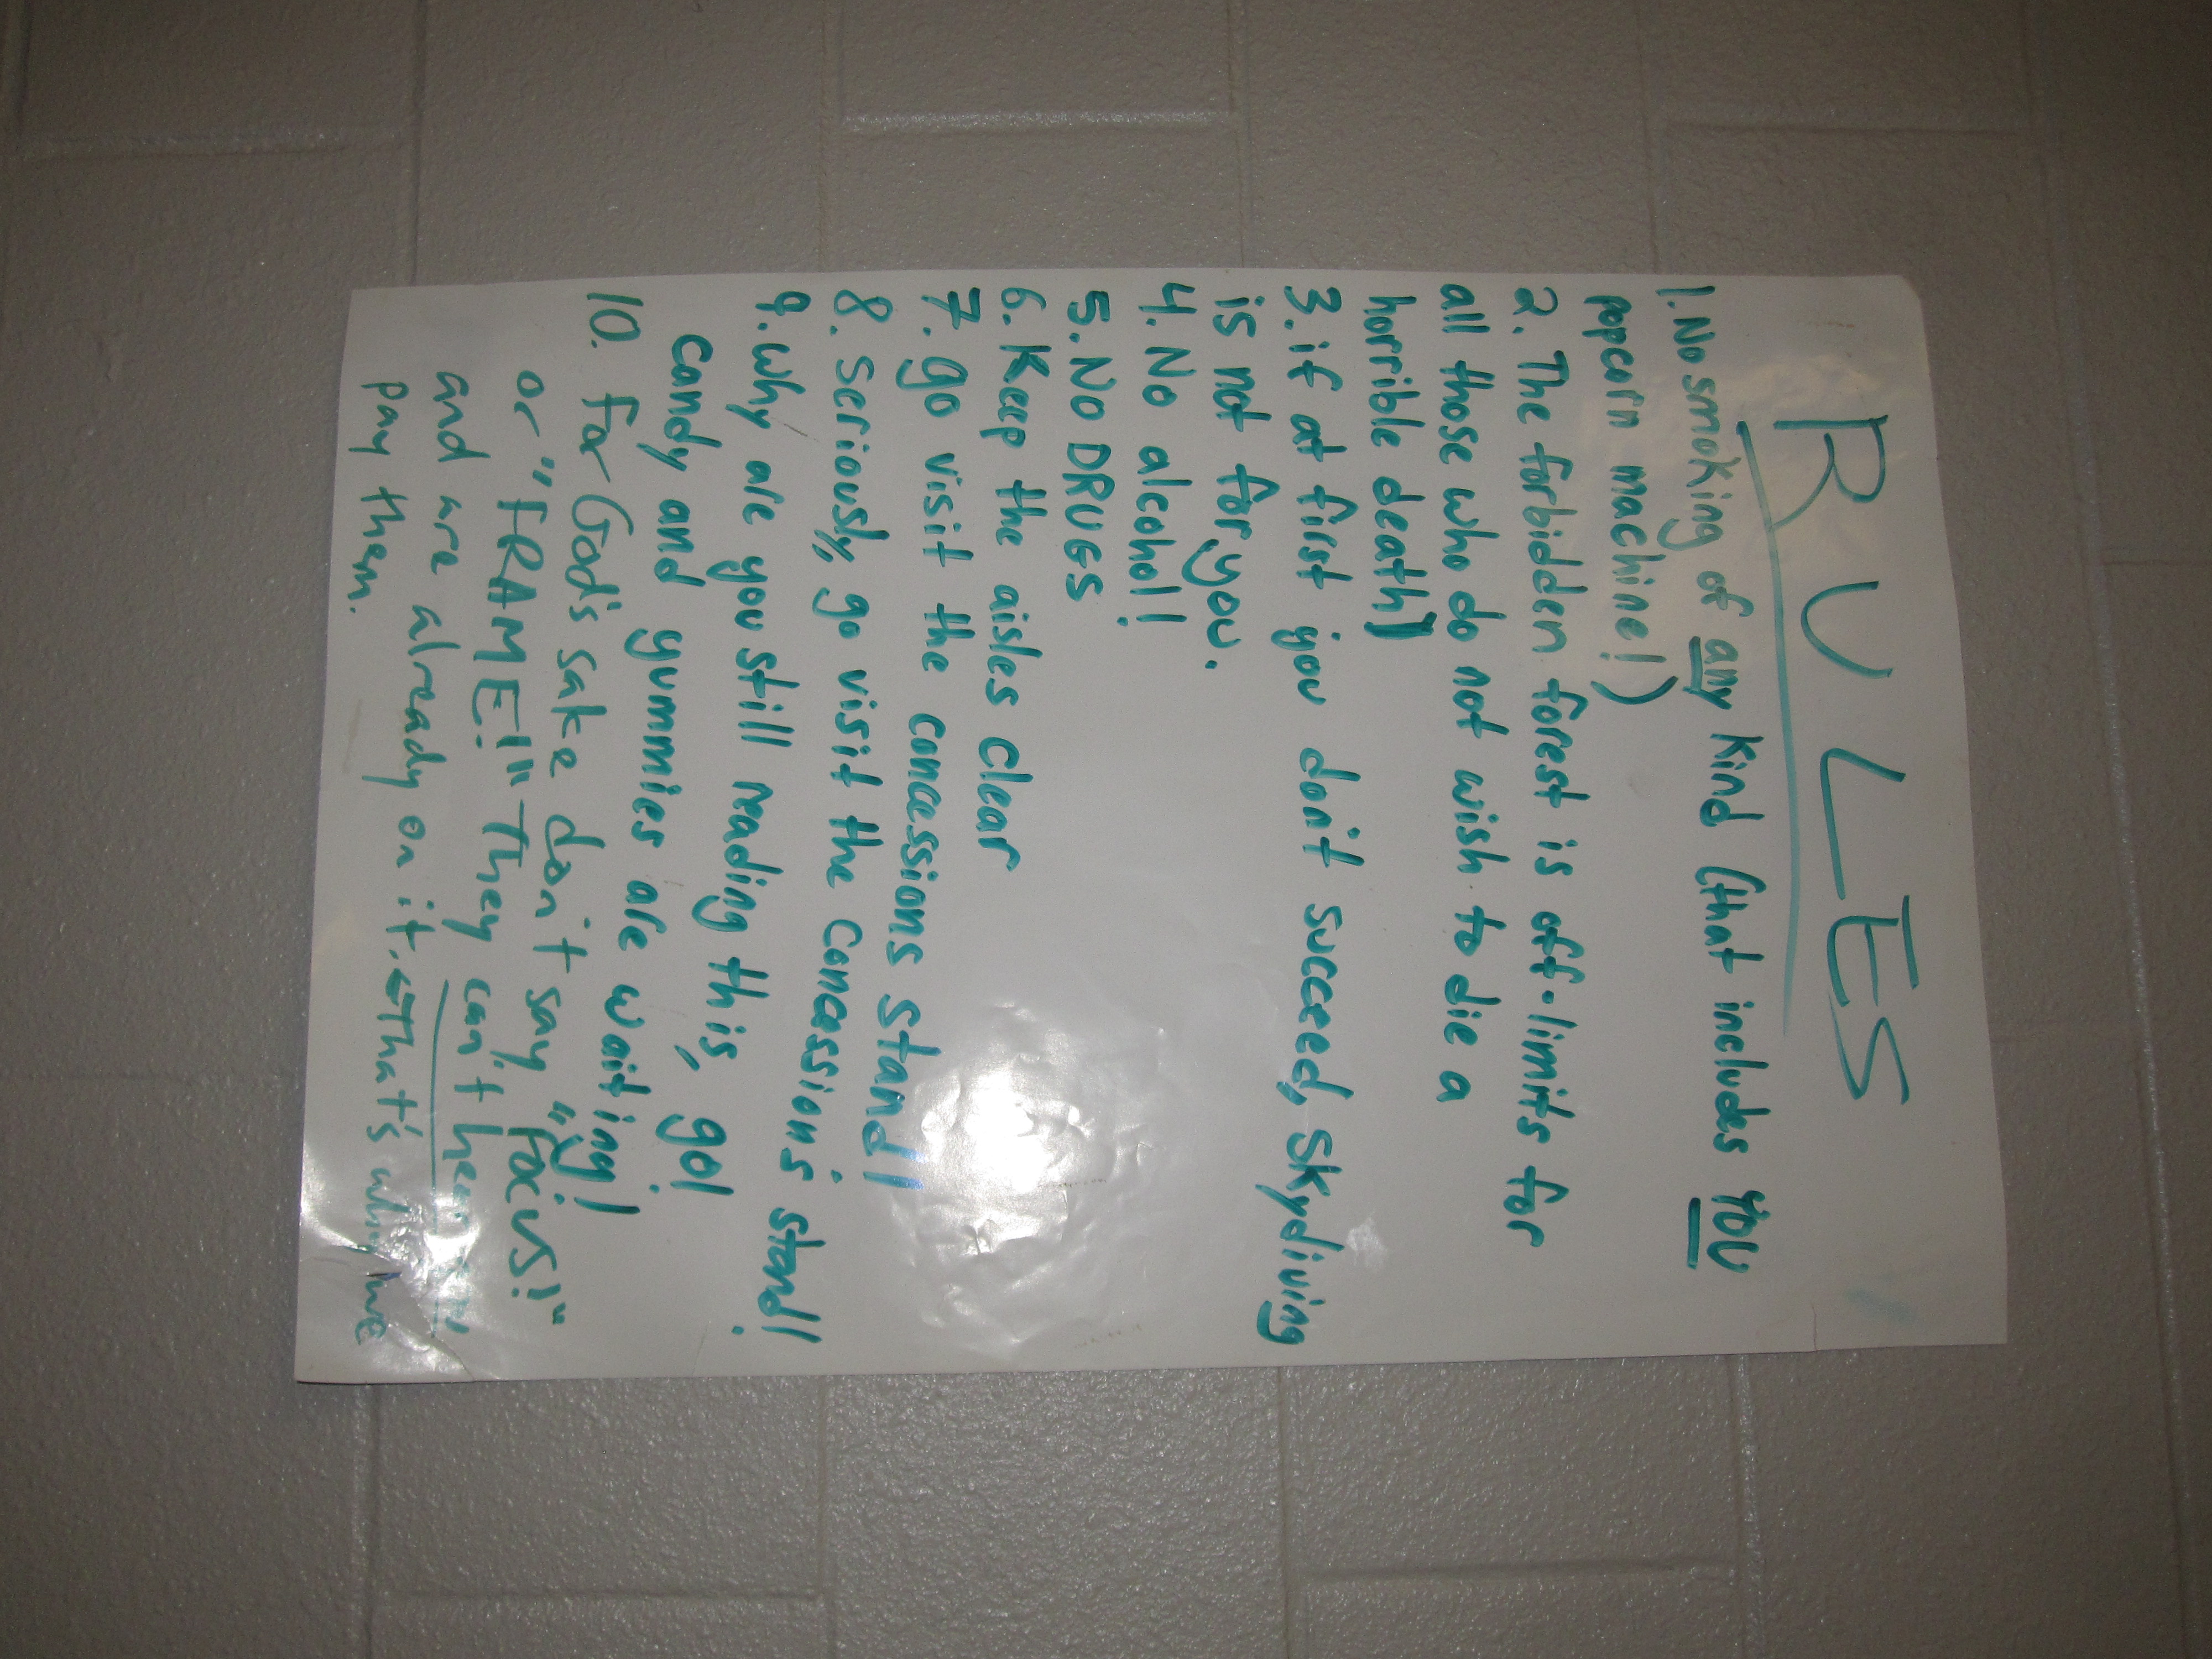 RULES
1. No smoking of any kind (that includes you
popcorn machine!)
2. The forbidden forest is off-limits for
all those who do not wish to die a
horrible death)
3. if at first you don't succeed, Skydiving
is not for you.
4. No alcohol!
5. NO DRUGS
6. Keep the aisles clear
7. go visit the concessions stand!
8. Seriously, go visit the concessions stand!
9. why are you still reading this, go!
Candy and yummies are waiting!
10. for God's sake don't say "Focus!"
or "FRAME!" They can't hear
and are already on it. ← That's why we
pay them.